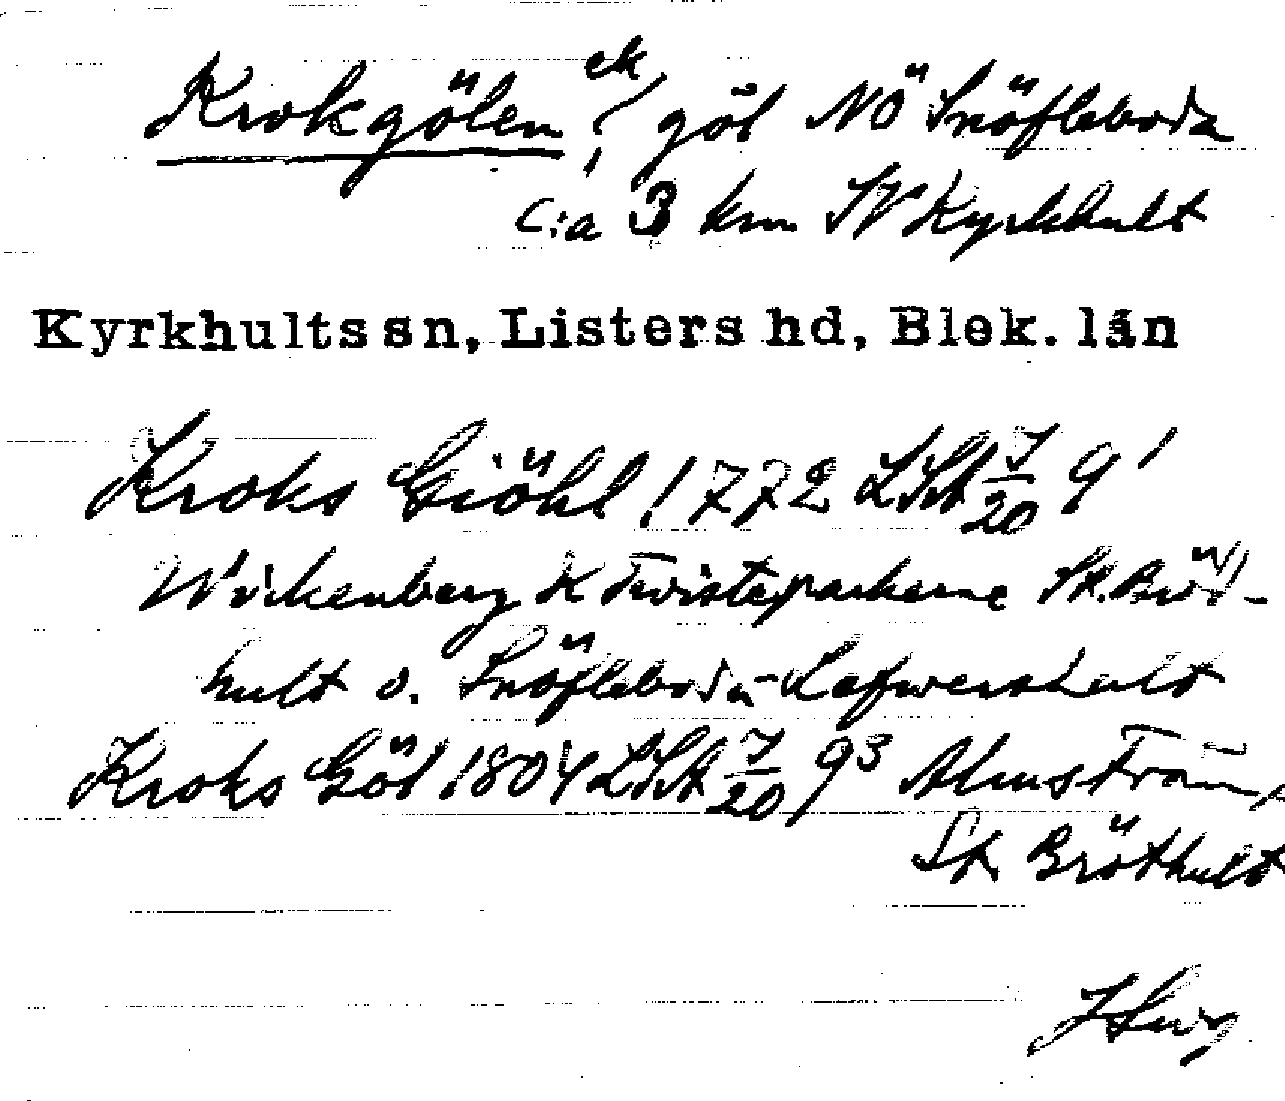 Krokgölen ek, göl NÖ Snöfleboda
c:a 3 km SV Kyrkhult
Kyrkhults sn, Listers hd, Blek. län
Kroks Giöhl 1772 LSA 7/20 9¹
Wirkenberg K Tvisteparkerne St. Bröd-
hult o. Snöfleboda-Lefwershult
Kroks Göl 1804 LSA 7/20 9³ Almström,
St Bröthult